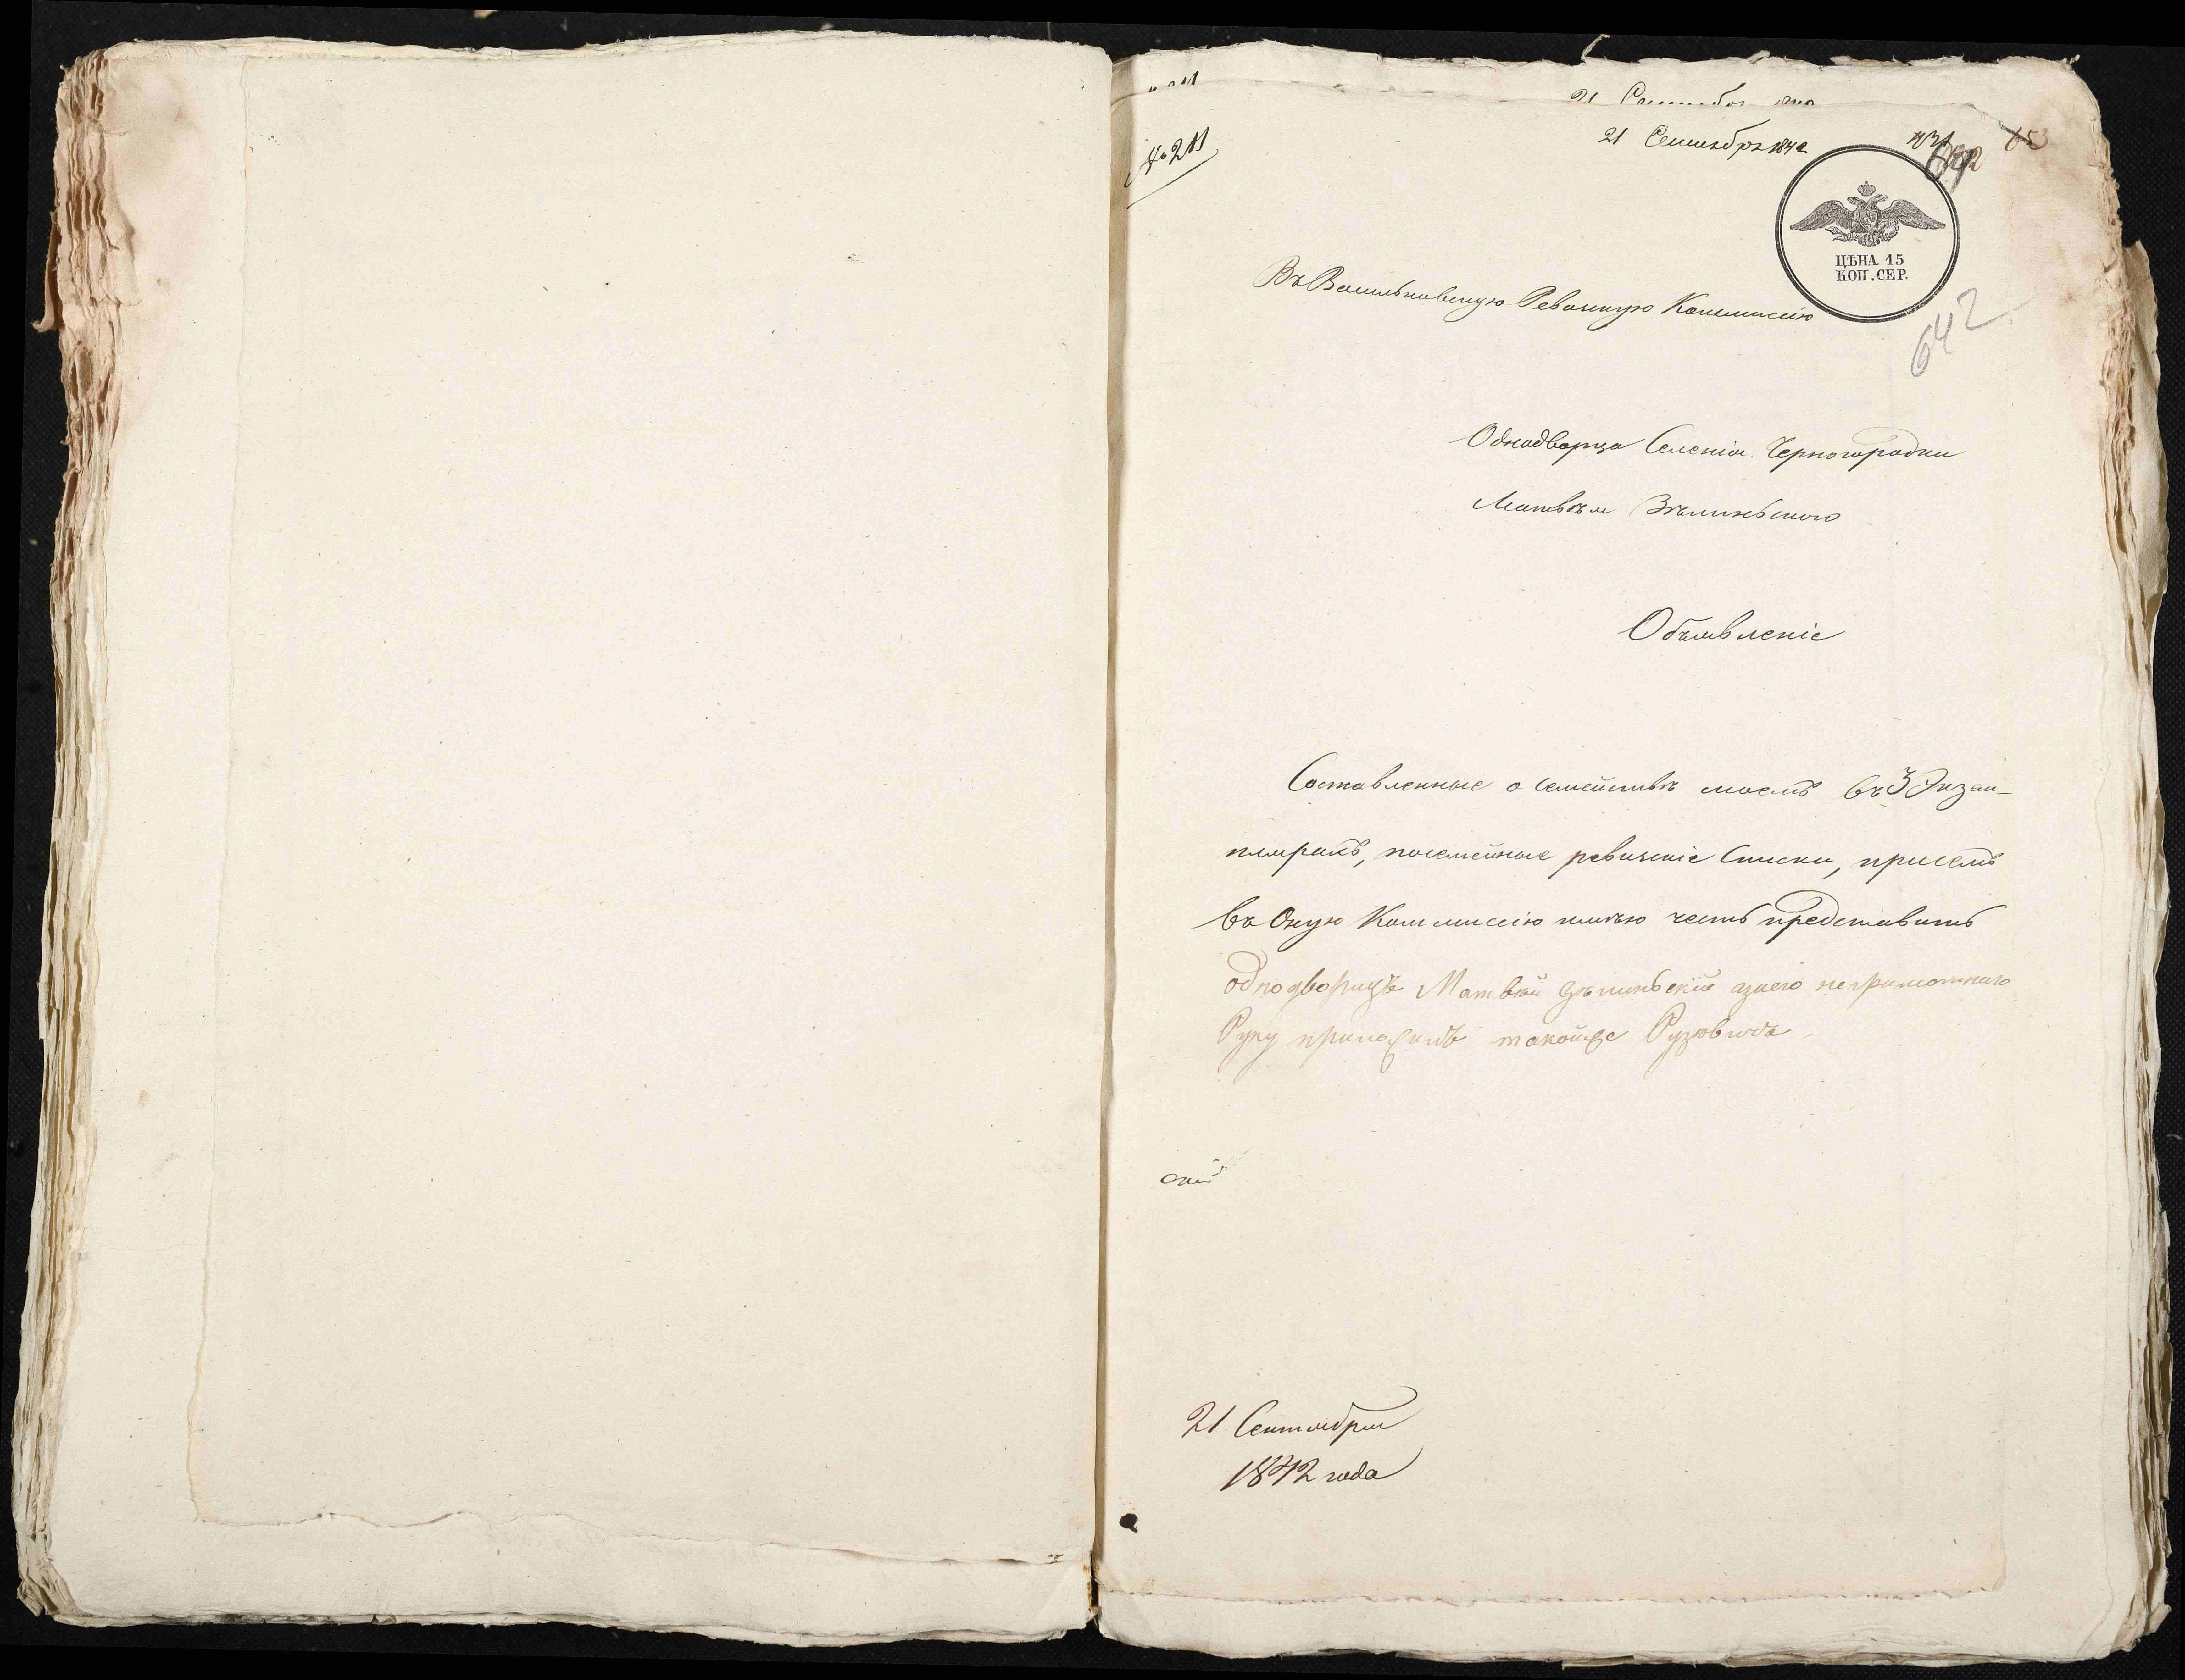 № 211
21 Сентября 1842
ЦѢНА 15
КОП. СЕР.
642
Въ Васильковскую Ревизкую Коммисію
Однодворца Селенія Черногородки
Матвѣя Зѣлиньского
Объявленіе
Составленные о семействѣ моемъ въ 3 Экзем-
плярахъ, посемейные ревизкіе списки, присемъ
въ Оную Коммисію имѣю честь представить
однодворицъ Матвѣй Зѣлиньскій азаего неграмотнаго
Руку приложилъ такойже
21 Сентября
1842 года